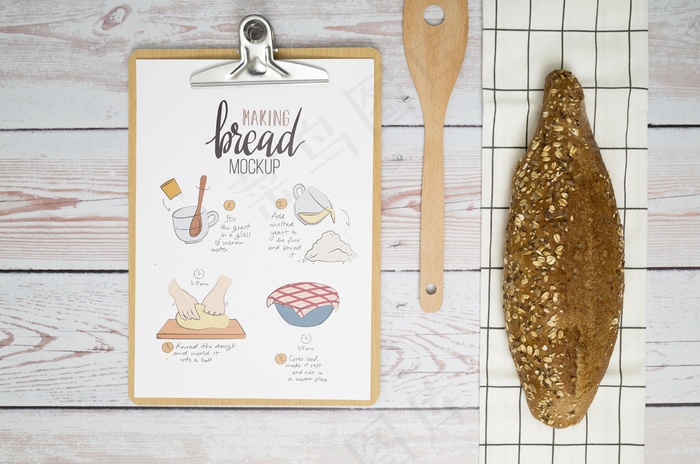 MAKING
bread
MOCKUP
1 Stir
the yeast
in a glass
of warm
water
2 Add
melted
yeast to
the flour
and knead
it
3-5 min
3 Knead the dough
and mould it
into a ball
45 min
4 Cover and
made it rest
and rise in
a warm place